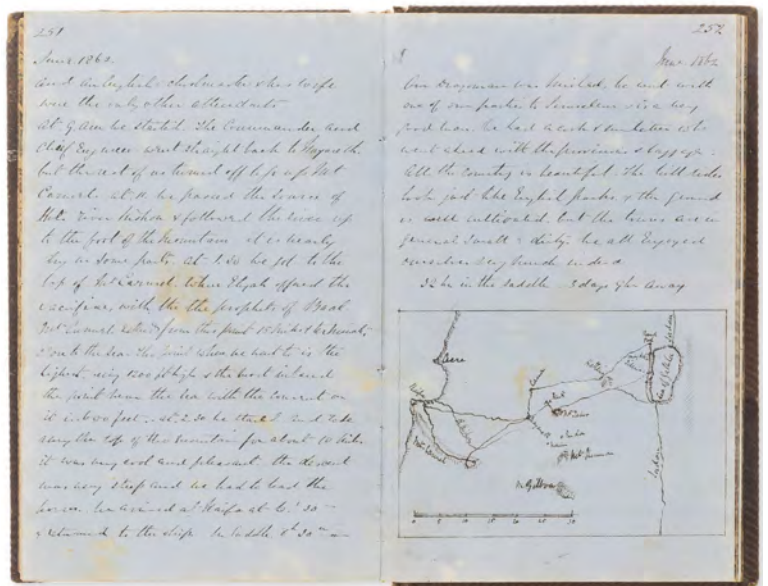 251
June 1862.
and an English & his wife
were the only other attendants
At 9. a.m. we started. The Commander and
Chief Engineer went straight back to
but the rest of us turned off to go up Mt
Carmel. at 11. we passed the source of
the River Kishon & followed the river up
to the foot of the Mountain it is nearly
dry in some parts. At 1.30 we got to the
top of Mt Carmel. where Elijah offered the
sacrifice, with the the prophets of Baal
Mt Carmel extends from this point 15 miles
out to the sea. The point where we went to is the
highest. being high & the most inland
the point near the sea with the convent on
it is 600 feet. at 2.30 we started and rode
along the top of this mountain for about 10 miles
it was very cool and pleasant. the descent
was very steep and we had to lead the
horses. We arrived at Haifa at 6.30
& returned to the ship. In saddle
252
June 1862
Our Dragoman was he went with
one of our parties to Jerusalem & is a very
good man. he had a cook & muleteers who
went ahead with the provisions & baggage.
All the country is beautiful. The hill sides
look just like English parks & the ground
is well cultivated. but the towns are in
general small & dirty. We all enjoyed
ourselves very much indeed
32 hrs in the saddle 3 days away
Acre
Haifa
Mt Carmel
Sea of Galilee
Jordan
Mt Gilboa
Jordan
0 5 10 15 20 25 30